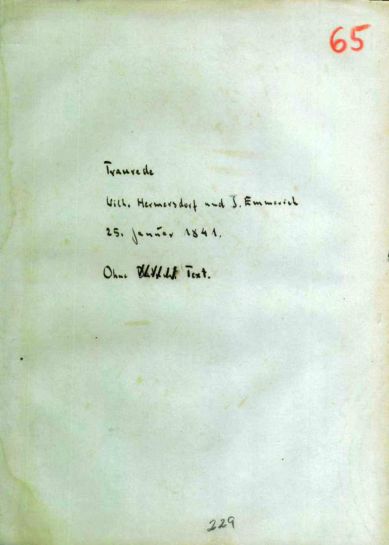 65
Traurede
Wilh. Hermersdorf und J. Emmerich
25. Januar 1841.
Ohne Text.
229